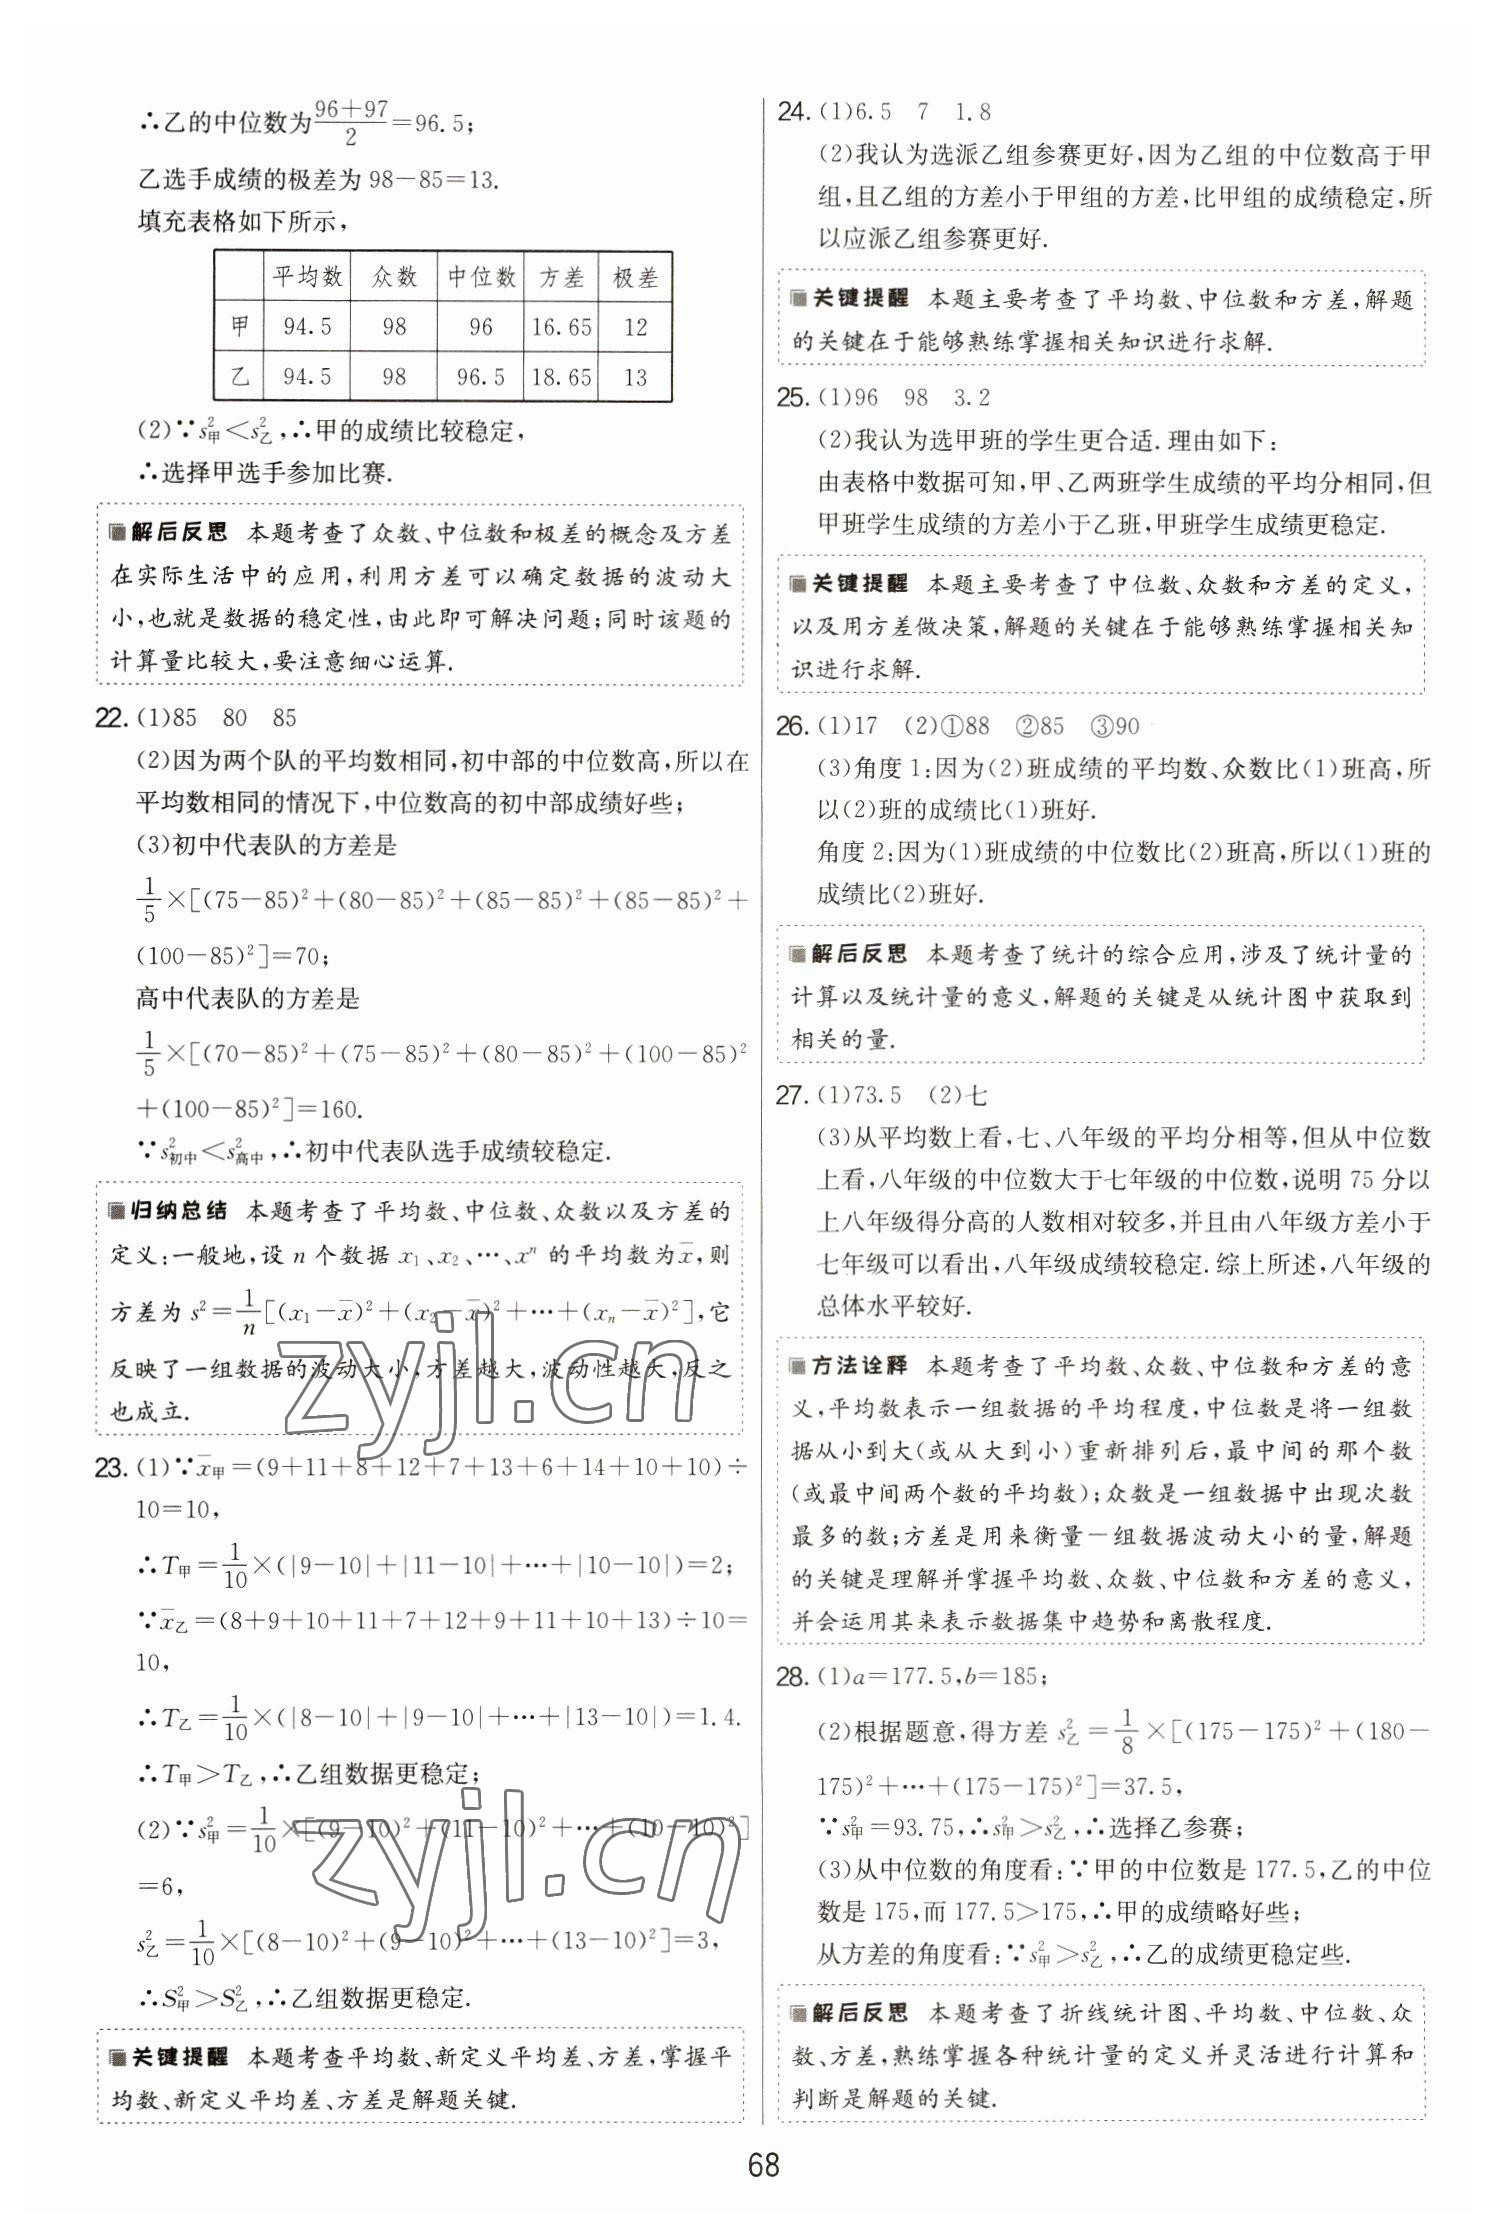 ∴乙的中位数为\frac{96+97}{2}=96.5;
乙选手成绩的极差为98-85=13.
填充表格如下所示,
平均数 众数 中位数 方差 极差
甲 94.5 98 96 16.65 12
乙 94.5 98 96.5 18.65 13
(2)∵s²甲<s²乙,∴甲的成绩比较稳定,
∴选择甲选手参加比赛.
解后反思 本题考查了众数、中位数和极差的概念及方差
在实际生活中的应用,利用方差可以确定数据的波动大
小,也就是数据的稳定性,由此即可解决问题;同时该题的
计算量比较大,要注意细心运算.
22. (1)85 80 85
(2)因为两个队的平均数相同,初中部的中位数高,所以在
平均数相同的情况下,中位数高的初中部成绩好些;
(3)初中代表队的方差是
\frac{1}{5}×[(75-85)²+(80-85)²+(85-85)²+(85-85)²+
(100-85)²]=70;
高中代表队的方差是
\frac{1}{5}×[(70-85)²+(75-85)²+(80-85)²+(100-85)²
+(100-85)²]=160.
∵s²初中<s²高中,∴初中代表队选手成绩较稳定.
归纳总结 本题考查了平均数、中位数、众数以及方差的
定义:一般地,设 n 个数据 x₁、x₂、…、xⁿ 的平均数为x̄,则
方差为 s²=\frac{1}{n}[(x₁-x̄)²+(x₂-x̄)²+…+(xₙ-x̄)²],它
反映了一组数据的波动大小,方差越大,波动性越大,反之
也成立.
23. (1)∵x̄甲=(9+11+8+12+7+13+6+14+10+10)÷
10=10,
∴T甲=\frac{1}{10}×(|9-10|+|11-10|+…+|10-10|)=2;
∵x̄乙=(8+9+10+11+7+12+9+11+10+13)÷10=
10,
∴T乙=\frac{1}{10}×(|8-10|+|9-10|+…+|13-10|)=1.4.
∴T甲>T乙,∴乙组数据更稳定;
(2)∵s²甲=\frac{1}{10}×[(9-10)²+(11-10)²+…+(10-10)²]
=6,
s²乙=\frac{1}{10}×[(8-10)²+(9-10)²+…+(13-10)²]=3,
∴S²甲>S²乙,∴乙组数据更稳定.
关键提醒 本题考查平均数、新定义平均差、方差,掌握平
均数、新定义平均差、方差是解题关键.
24. (1)6.5 7 1.8
(2)我认为选派乙组参赛更好,因为乙组的中位数高于甲
组,且乙组的方差小于甲组的方差,比甲组的成绩稳定,所
以应派乙组参赛更好.
关键提醒 本题主要考查了平均数、中位数和方差,解题
的关键在于能够熟练掌握相关知识进行求解.
25. (1)96 98 3.2
(2)我认为选甲班的学生更合适.理由如下:
由表格中数据可知,甲、乙两班学生成绩的平均分相同,但
甲班学生成绩的方差小于乙班,甲班学生成绩更稳定.
关键提醒 本题主要考查了中位数、众数和方差的定义,
以及用方差做决策,解题的关键在于能够熟练掌握相关知
识进行求解.
26. (1)17 (2)①88 ②85 ③90
(3)角度1:因为(2)班成绩的平均数、众数比(1)班高,所
以(2)班的成绩比(1)班好.
角度2:因为(1)班成绩的中位数比(2)班高,所以(1)班的
成绩比(2)班好.
解后反思 本题考查了统计的综合应用,涉及了统计量的
计算以及统计量的意义,解题的关键是从统计图中获取到
相关的量.
27. (1)73.5 (2)七
(3)从平均数上看,七、八年级的平均分相等,但从中位数
上看,八年级的中位数大于七年级的中位数,说明75分以
上八年级得分高的人数相对较多,并且由八年级方差小于
七年级可以看出,八年级成绩较稳定.综上所述,八年级的
总体水平较好.
方法诠释 本题考查了平均数、众数、中位数和方差的意
义,平均数表示一组数据的平均程度,中位数是将一组数
据从小到大(或从大到小)重新排列后,最中间的那个数
(或最中间两个数的平均数);众数是一组数据中出现次数
最多的数;方差是用来衡量一组数据波动大小的量,解题
的关键是理解并掌握平均数、众数、中位数和方差的意义,
并会运用其来表示数据集中趋势和离散程度.
28. (1)a=177.5,b=185;
(2)根据题意,得方差 s²乙=\frac{1}{8}×[(175-175)²+(180-
175)²+…+(175-175)²]=37.5,
∵s²甲=93.75,∴s²甲>s²乙,∴选择乙参赛;
(3)从中位数的角度看:∵甲的中位数是177.5,乙的中位
数是175,而177.5>175,∴甲的成绩略好些;
从方差的角度看:∵s²甲>s²乙,∴乙的成绩更稳定些.
解后反思 本题考查了折线统计图、平均数、中位数、众
数、方差,熟练掌握各种统计量的定义并灵活进行计算和
判断是解题的关键.
68
zyjl.cn
zyjl.cn